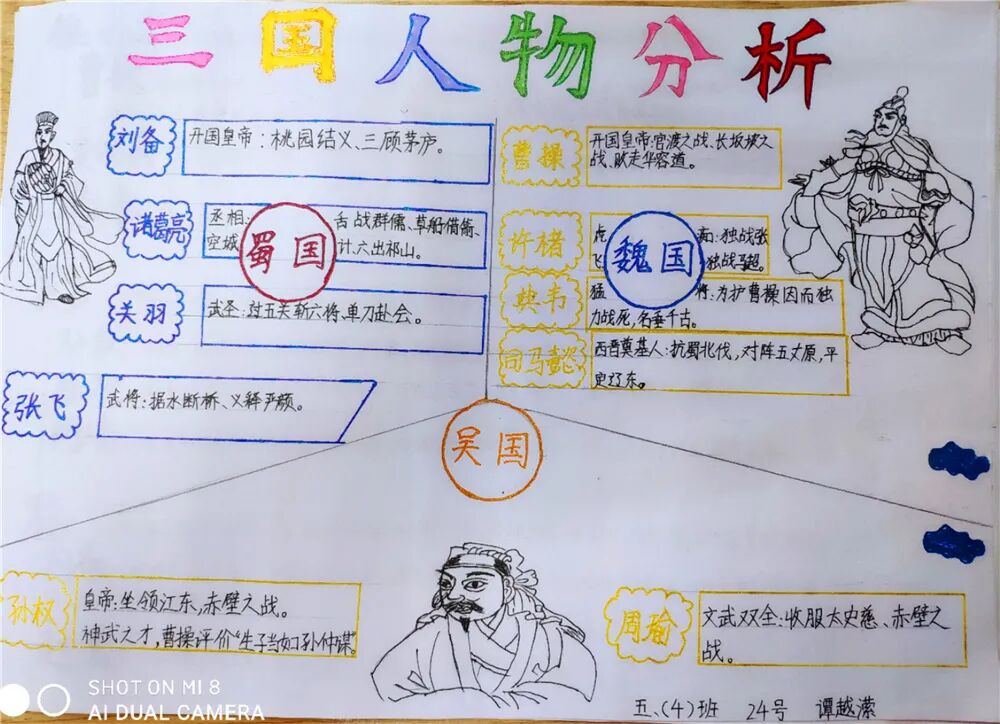 三国人物分析
刘备
开国皇帝：桃园结义、三顾茅庐。
诸葛亮
丞相:
舌战群儒、草船借箭、
空城
计.六出祁山。
蜀国
关羽
武圣:过五关斩六将、单刀赴会。
张飞
武将:据水断桥、义释严颜。
曹操
开国皇帝:官渡之战、长坂坡之
战、败走华容道。
许褚
虎
独战张
飞
独战马超。
魏国
典韦
猛
将:为护曹操因而独
力战死,名垂千古。
司马懿
西晋奠基人:抗蜀北伐,对阵五丈原,平
定辽东。
吴国
孙权
皇帝:坐领江东,赤壁之战。
神武之才,曹操评价“生子当如孙仲谋”。
周瑜
文武双全:收服太史慈、赤壁之
战。
五、(4)班 24号 谭越濛
SHOT ON MI 8
AI DUAL CAMERA